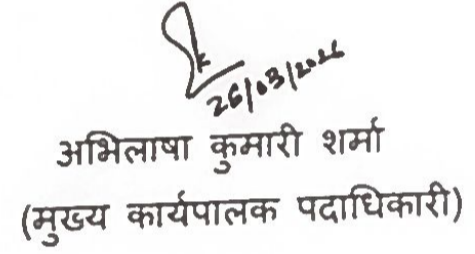 26/03/2026
अभिलाषा कुमारी शर्मा
(मुख्य कार्यपालक पदाधिकारी)